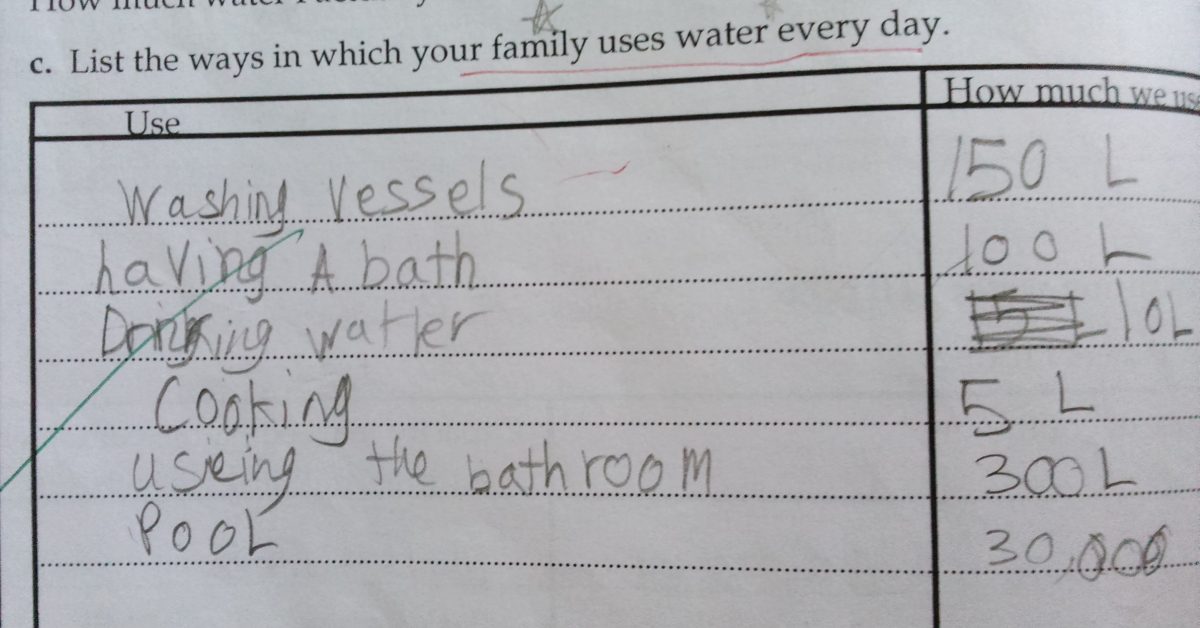 c. List the ways in which your family uses water every day.
Use How much we use
Washing Vessels 150 L
having A bath 100 L
Drinking watter 10L
Cooking 5 L
useing the bathroom 300L
PooL 30,000